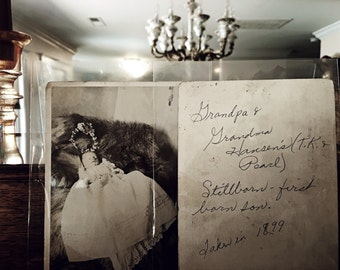 Grandpa &
Grandma
Hansen's (T.K. &
Pearl)
Stillborn - first
born son.
Taken in 1899